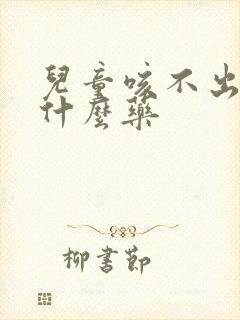 兒童咳不出
什麼藥
柳書節